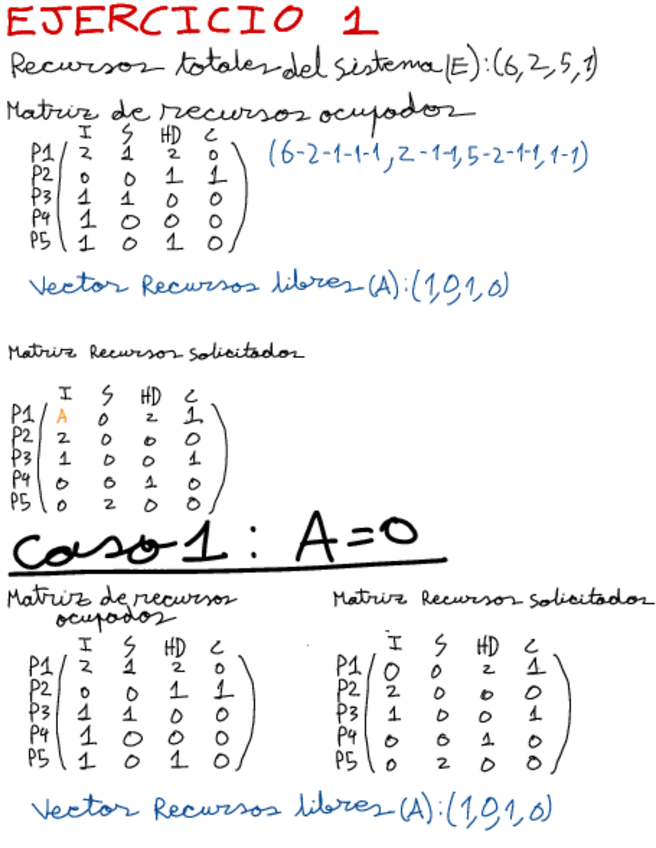 EJERCICIO 1
Recursos totales del sistema (E): (6, 2, 5, 1)
Matriz de recursos ocupados
I S HD C
P1 2 1 2 0
(6-2-1-1-1, 2-1-1, 5-2-1-1, 1-1)
P2 0 0 1 1
P3 1 1 0 0
P4 1 0 0 0
P5 1 0 1 0
Vector Recursos libres (A): (1, 0, 1, 0)
Matriz Recursos solicitados
I S HD C
P1 A 0 2 1
P2 2 0 0 0
P3 1 0 0 1
P4 0 0 1 0
P5 0 2 0 0
Caso 1: A=0
Matriz de recursos
ocupados
I S HD C
P1 2 1 2 0
P2 0 0 1 1
P3 1 1 0 0
P4 1 0 0 0
P5 1 0 1 0
Matriz Recursos solicitados
I S HD C
P1 0 0 2 1
P2 2 0 0 0
P3 1 0 0 1
P4 0 0 1 0
P5 0 2 0 0
Vector Recursos libres (A): (1, 0, 1, 0)